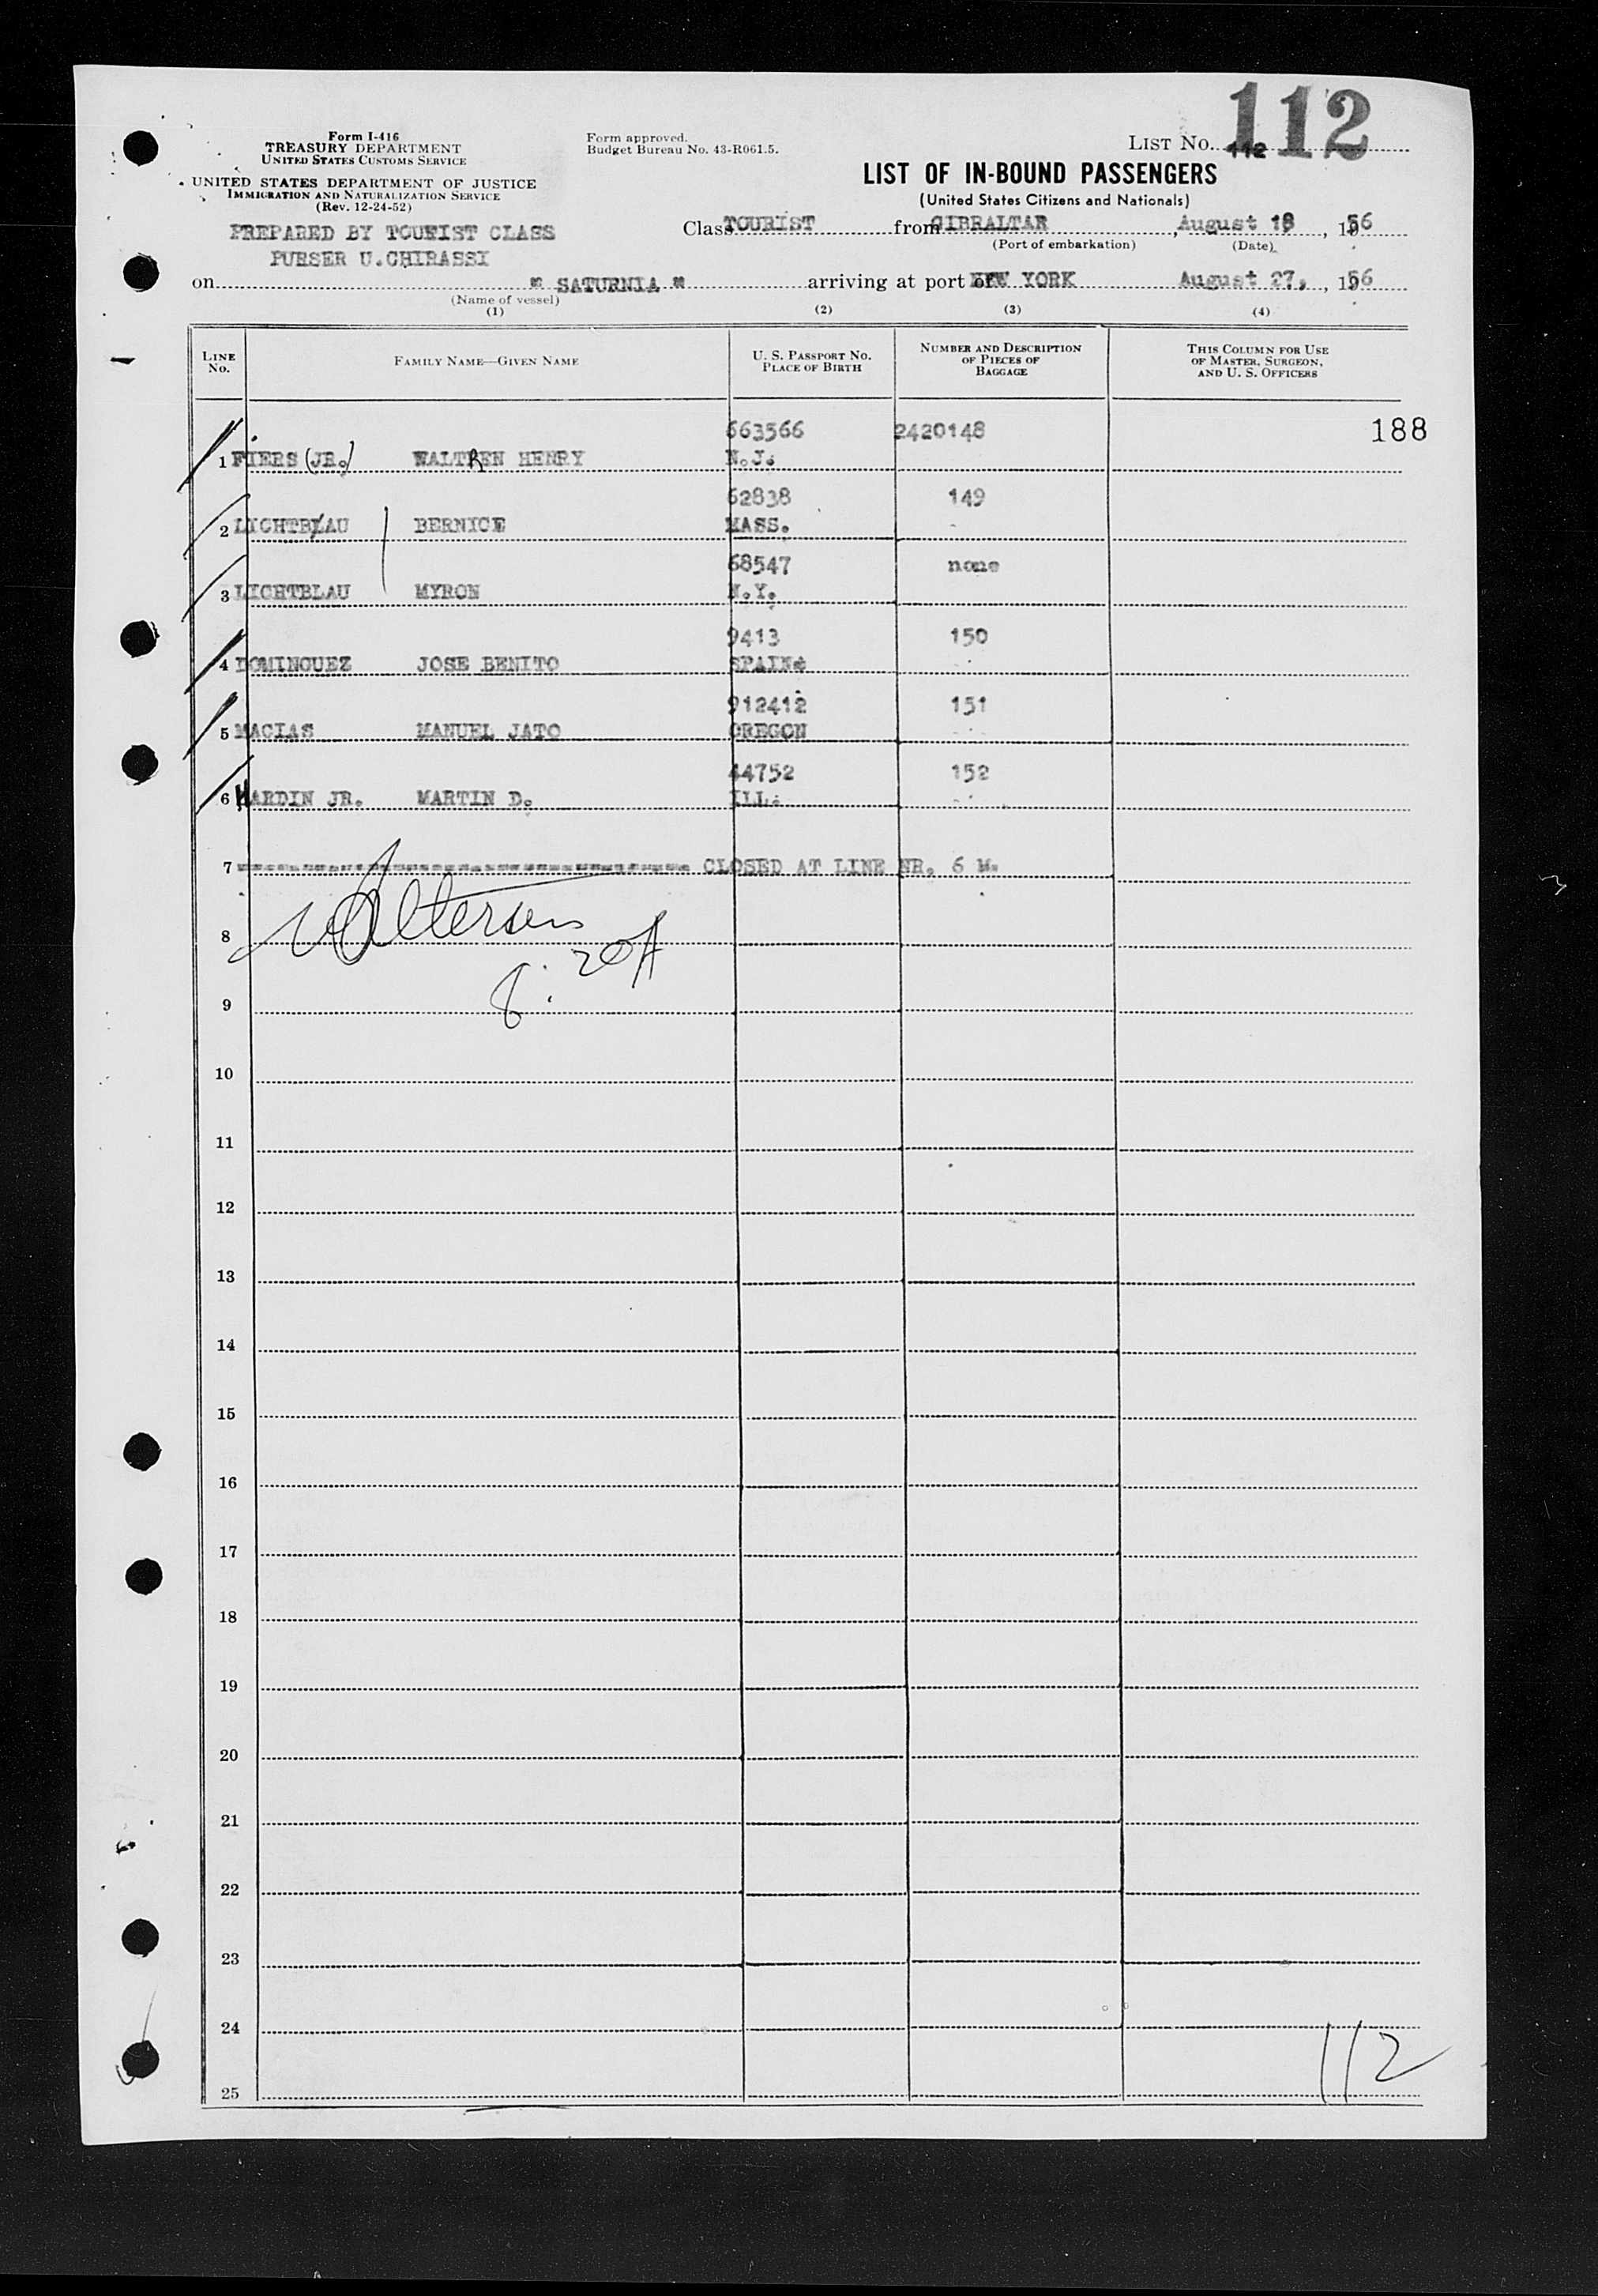 112
Form I-416
TREASURY DEPARTMENT
UNITED STATES CUSTOMS SERVICE
UNITED STATES DEPARTMENT OF JUSTICE
IMMIGRATION AND NATURALIZATION SERVICE
(Rev. 12-24-52)
Form approved.
Budget Bureau No. 43-R061.5.
LIST NO. 112
LIST OF IN-BOUND PASSENGERS
(United States Citizens and Nationals)
PREPARED BY TOURIST CLASS
PURSER U.CHIRASSI
Class TOURIST from GIBRALTAR, August 18, 1956
(Port of embarkation) (Date)
on " SATURNIA " arriving at port of NEW YORK August 27, 1956
(Name of vessel)
(1) (2) (3) (4)
LINE NO. FAMILY NAME—GIVEN NAME U. S. PASSPORT NO. PLACE OF BIRTH NUMBER AND DESCRIPTION OF PIECES OF BAGGAGE THIS COLUMN FOR USE OF MASTER, SURGEON, AND U. S. OFFICERS
663566 2420148 188
1 FIERS (JR.) WALTREN HENRY N.J.
62838 149
2 LICHTBLAU BERNICE MASS.
68547 none
3 LICHTBLAU MYRON N.Y.
9413 150
4 DOMINGUEZ JOSE BENITO SPAIN
912412 151
5 MACIAS MANUEL JATO OREGON
44752 152
6 HARDIN JR. MARTIN D. ILL.
7 CLOSED AT LINE NR. 6
8
8:20A
9
10
11
12
13
14
15
16
17
18
19
20
21
22
23
24
112
25